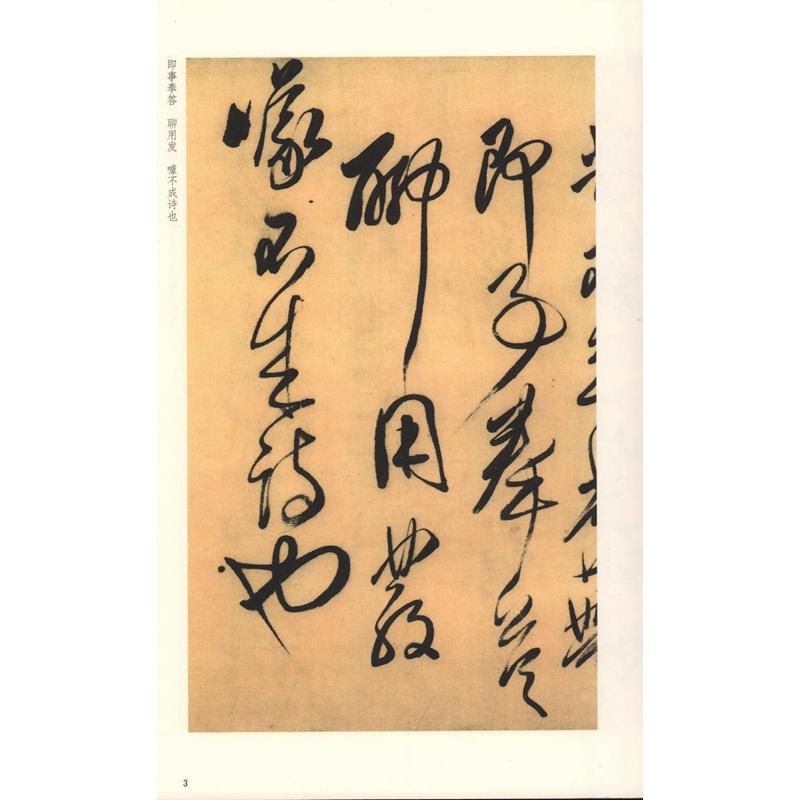 即事奉答
聊用發
噱不成詩也
即事奉答 聊用发 噱不成诗也
3